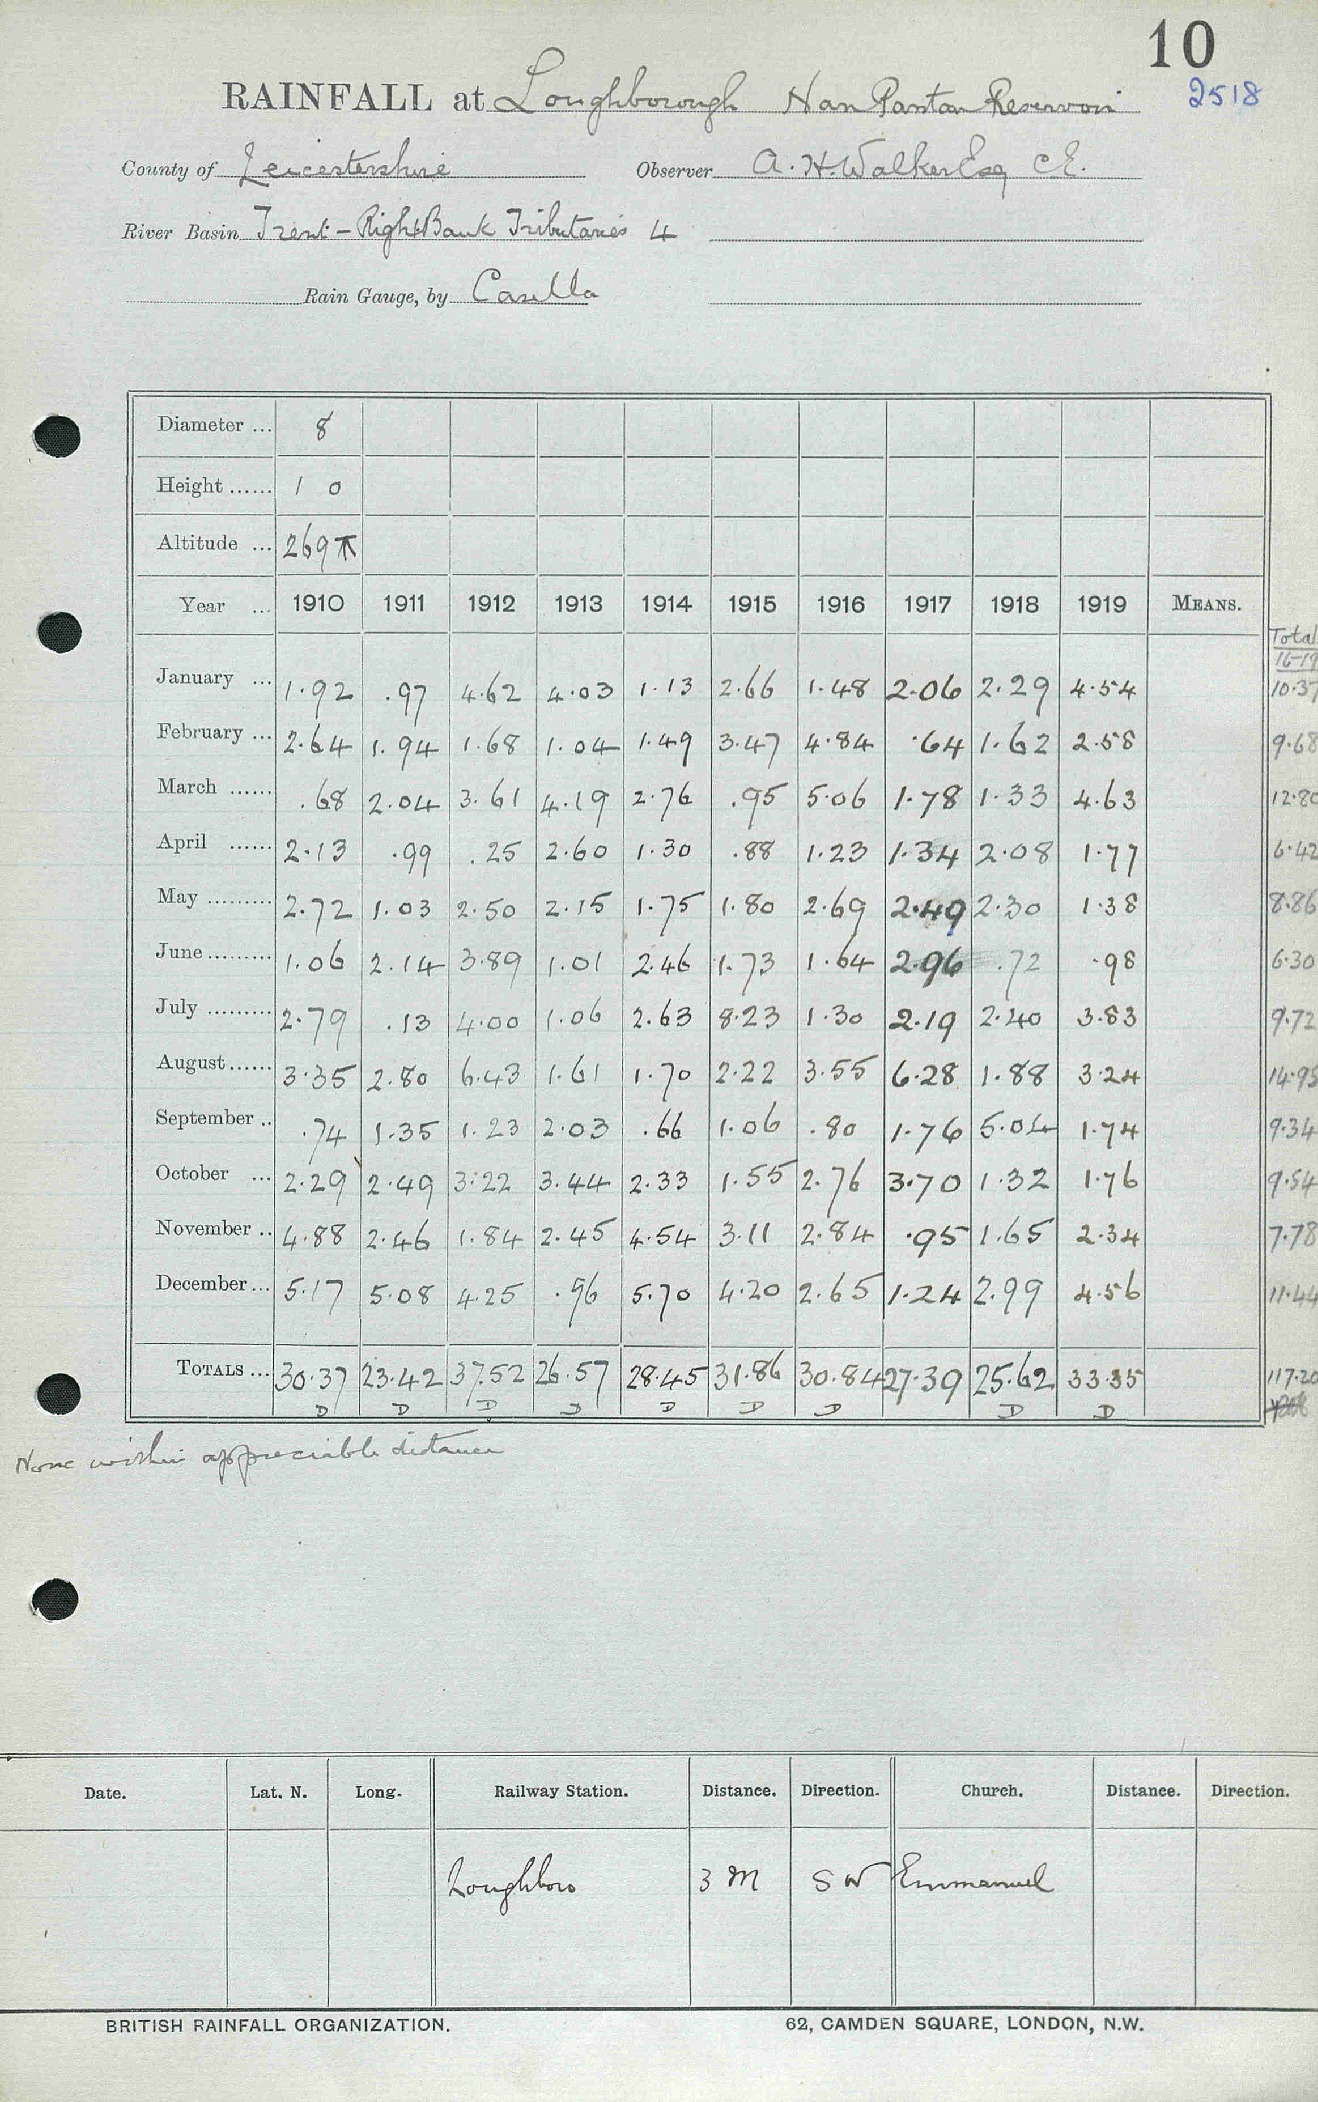 10
RAINFALL at Loughborough Nan Pantan Reservoir 2518
County of Leicestershire Observer A. H. Walker Esq C.E.
River Basin Trent - Right Bank Tributaries 4
Rain Gauge, by Casella
Diameter ... 8
Height ...... 1 0
Altitude ... 269
Year ... 1910 1911 1912 1913 1914 1915 1916 1917 1918 1919 MEANS. Total
16-19
January ... 1.92 .97 4.62 4.03 1.13 2.66 1.48 2.06 2.29 4.54 10.37
February ... 2.64 1.94 1.68 1.04 1.49 3.47 4.84 .64 1.62 2.58 9.68
March ...... .68 2.04 3.61 4.19 2.76 .95 5.06 1.78 1.33 4.63 12.80
April ...... 2.13 .99 .25 2.60 1.30 .88 1.23 1.34 2.08 1.77 6.42
May ......... 2.72 1.03 2.50 2.15 1.75 1.80 2.69 2.49 2.30 1.38 8.86
June ......... 1.06 2.14 3.89 1.01 2.46 1.73 1.64 2.96 .72 .98 6.30
July ......... 2.79 .13 4.00 1.06 2.63 8.23 1.30 2.19 2.40 3.83 9.72
August ...... 3.35 2.80 6.43 1.61 1.70 2.22 3.55 6.28 1.88 3.24 14.95
September .. .74 1.35 1.23 2.03 .66 1.06 .80 1.76 5.04 1.74 9.34
October ... 2.29 2.49 3.22 3.44 2.33 1.55 2.76 3.70 1.32 1.76 9.54
November .. 4.88 2.46 1.84 2.45 4.54 3.11 2.84 .95 1.65 2.34 7.78
December ... 5.17 5.08 4.25 .96 5.70 4.20 2.65 1.24 2.99 4.56 11.44
TOTALS ... 30.37 23.42 37.52 26.57 28.45 31.86 30.84 27.39 25.62 33.35 117.20
D D D D D D D D D
None within appreciable distance
Date. Lat. N. Long. Railway Station. Distance. Direction. Church. Distance. Direction.
Loughboro 3 M S W Emmanuel
BRITISH RAINFALL ORGANIZATION. 62, CAMDEN SQUARE, LONDON, N.W.